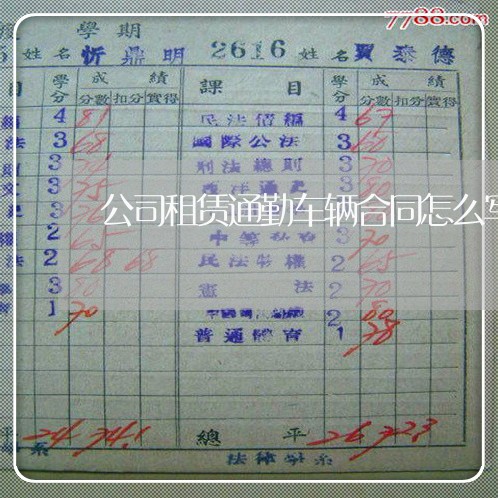 7788.com
學期
姓名 忻鼎明 2616 姓名 賈泰德
目 學分 成績 課目 學分 成績
分數 扣分 實得 分數 扣分 實得
4 81 民法債編 4 67
法 3 68 國際公法 3 60
3 刑法總則 3 70
文 3 75 3 80
公司租赁通勤车辆合同怎么写
2 65 中等 3 70
法 2 68 68 民法物權 2 65
3 80 憲法 2 70
1 70 2 80
普通體育 1 78
平 24 74.1 總平 26 72.3
系 法律學系